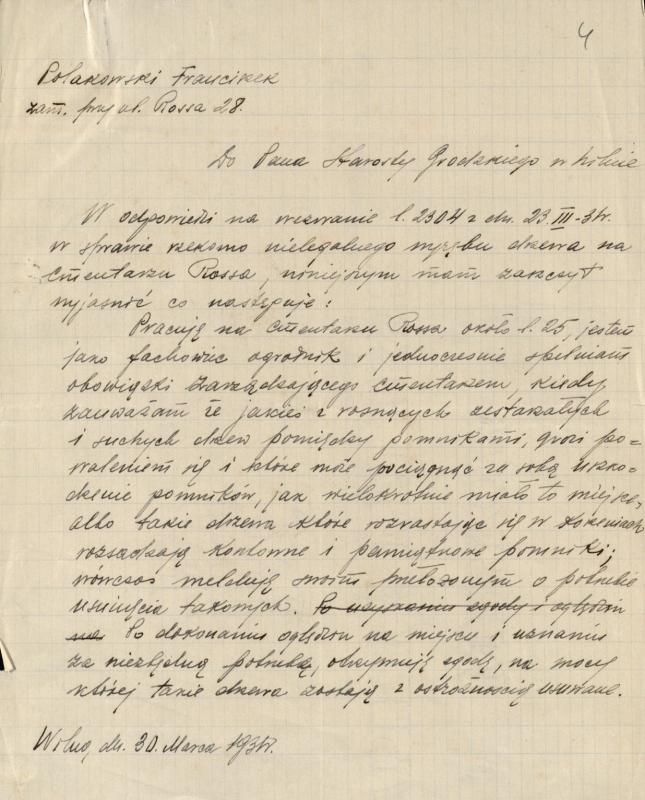 4
Polakowski Franciszek
zam. przy ul. Rossa 28.
Do Pana Starosty Grodzkiego w Wilnie
W odpowiedzi na wezwanie l. 2304 z dn. 23.III-34r.
w sprawie rzekomo nielegalnego wyrębu drzewa na
Cmentarzu Rossa, niniejszym mam zaszczyt
wyjaśnić co następuje:
Pracują na Cmentarzu Rossa około l. 25, jestem
jako fachowiec ogrodnik i jednocześnie spełniam
obowiązki Zarządzającego Cmentarzem, kiedy
zauważam że jakieś z rosnących zestarzałych
i suchych drzew pomiędzy pomnikami, grozi po=
waleniem się i które może pociągnąć za sobą uszko-
dzenie pomników, jak wielokrotnie miało to miejsce,
albo takie drzewa które rozrastając się w korzeniach
rozsadzają kontowne i pamiątkowe pomniki;
wówczas melduję swoim przełożonym o potrzebie
usunięcia takowych. Po uzyskaniu zgody i oględzin
na Po dokonaniu oględzin na miejscu i uznaniu
za niezbędną potrzebę, otrzymuję zgodę, na mocy
której takie drzewa zostają z ostrożnością usuwane.
Wilno, dn. 30. Marca 1934r.